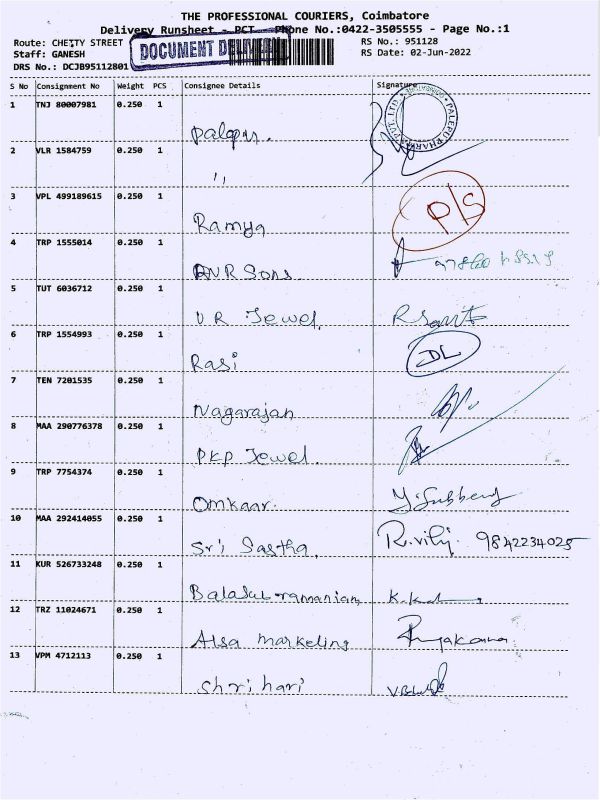 THE PROFESSIONAL COURIERS, Coimbatore
Delivery Runsheet - PCT - Phone No.:0422-3505555 - Page No.:1
Route: CHETTY STREET RS No.: 951128
Staff: GANESH RS Date: 02-Jun-2022
DRS No.: DCJB95112801
DOCUMENT
S No Consignment No Weight PCS Consignee Details Signature
1 TNJ 80007981 0.250 1
Palepu.
PALEPU PHARMA PVT. LTD.
2 VLR 1584759 0.250 1
,,
3 VPL 499189615 0.250 1
Ramya P/S
4 TRP 1555014 0.250 1
AVR Sons.
5 TUT 6036712 0.250 1
VR Jewel.
6 TRP 1554993 0.250 1
Rasi DL
7 TEN 7201535 0.250 1
Nagarajan
8 MAA 290776378 0.250 1
PKP Jewel.
9 TRP 7754374 0.250 1
Omkaar.
10 MAA 292414055 0.250 1
Sri Sastha. 9842234025
11 KUR 526733248 0.250 1
Balasubramaniam
12 TRZ 11024671 0.250 1
Alsa marketing
13 VPM 4712113 0.250 1
Shrihari